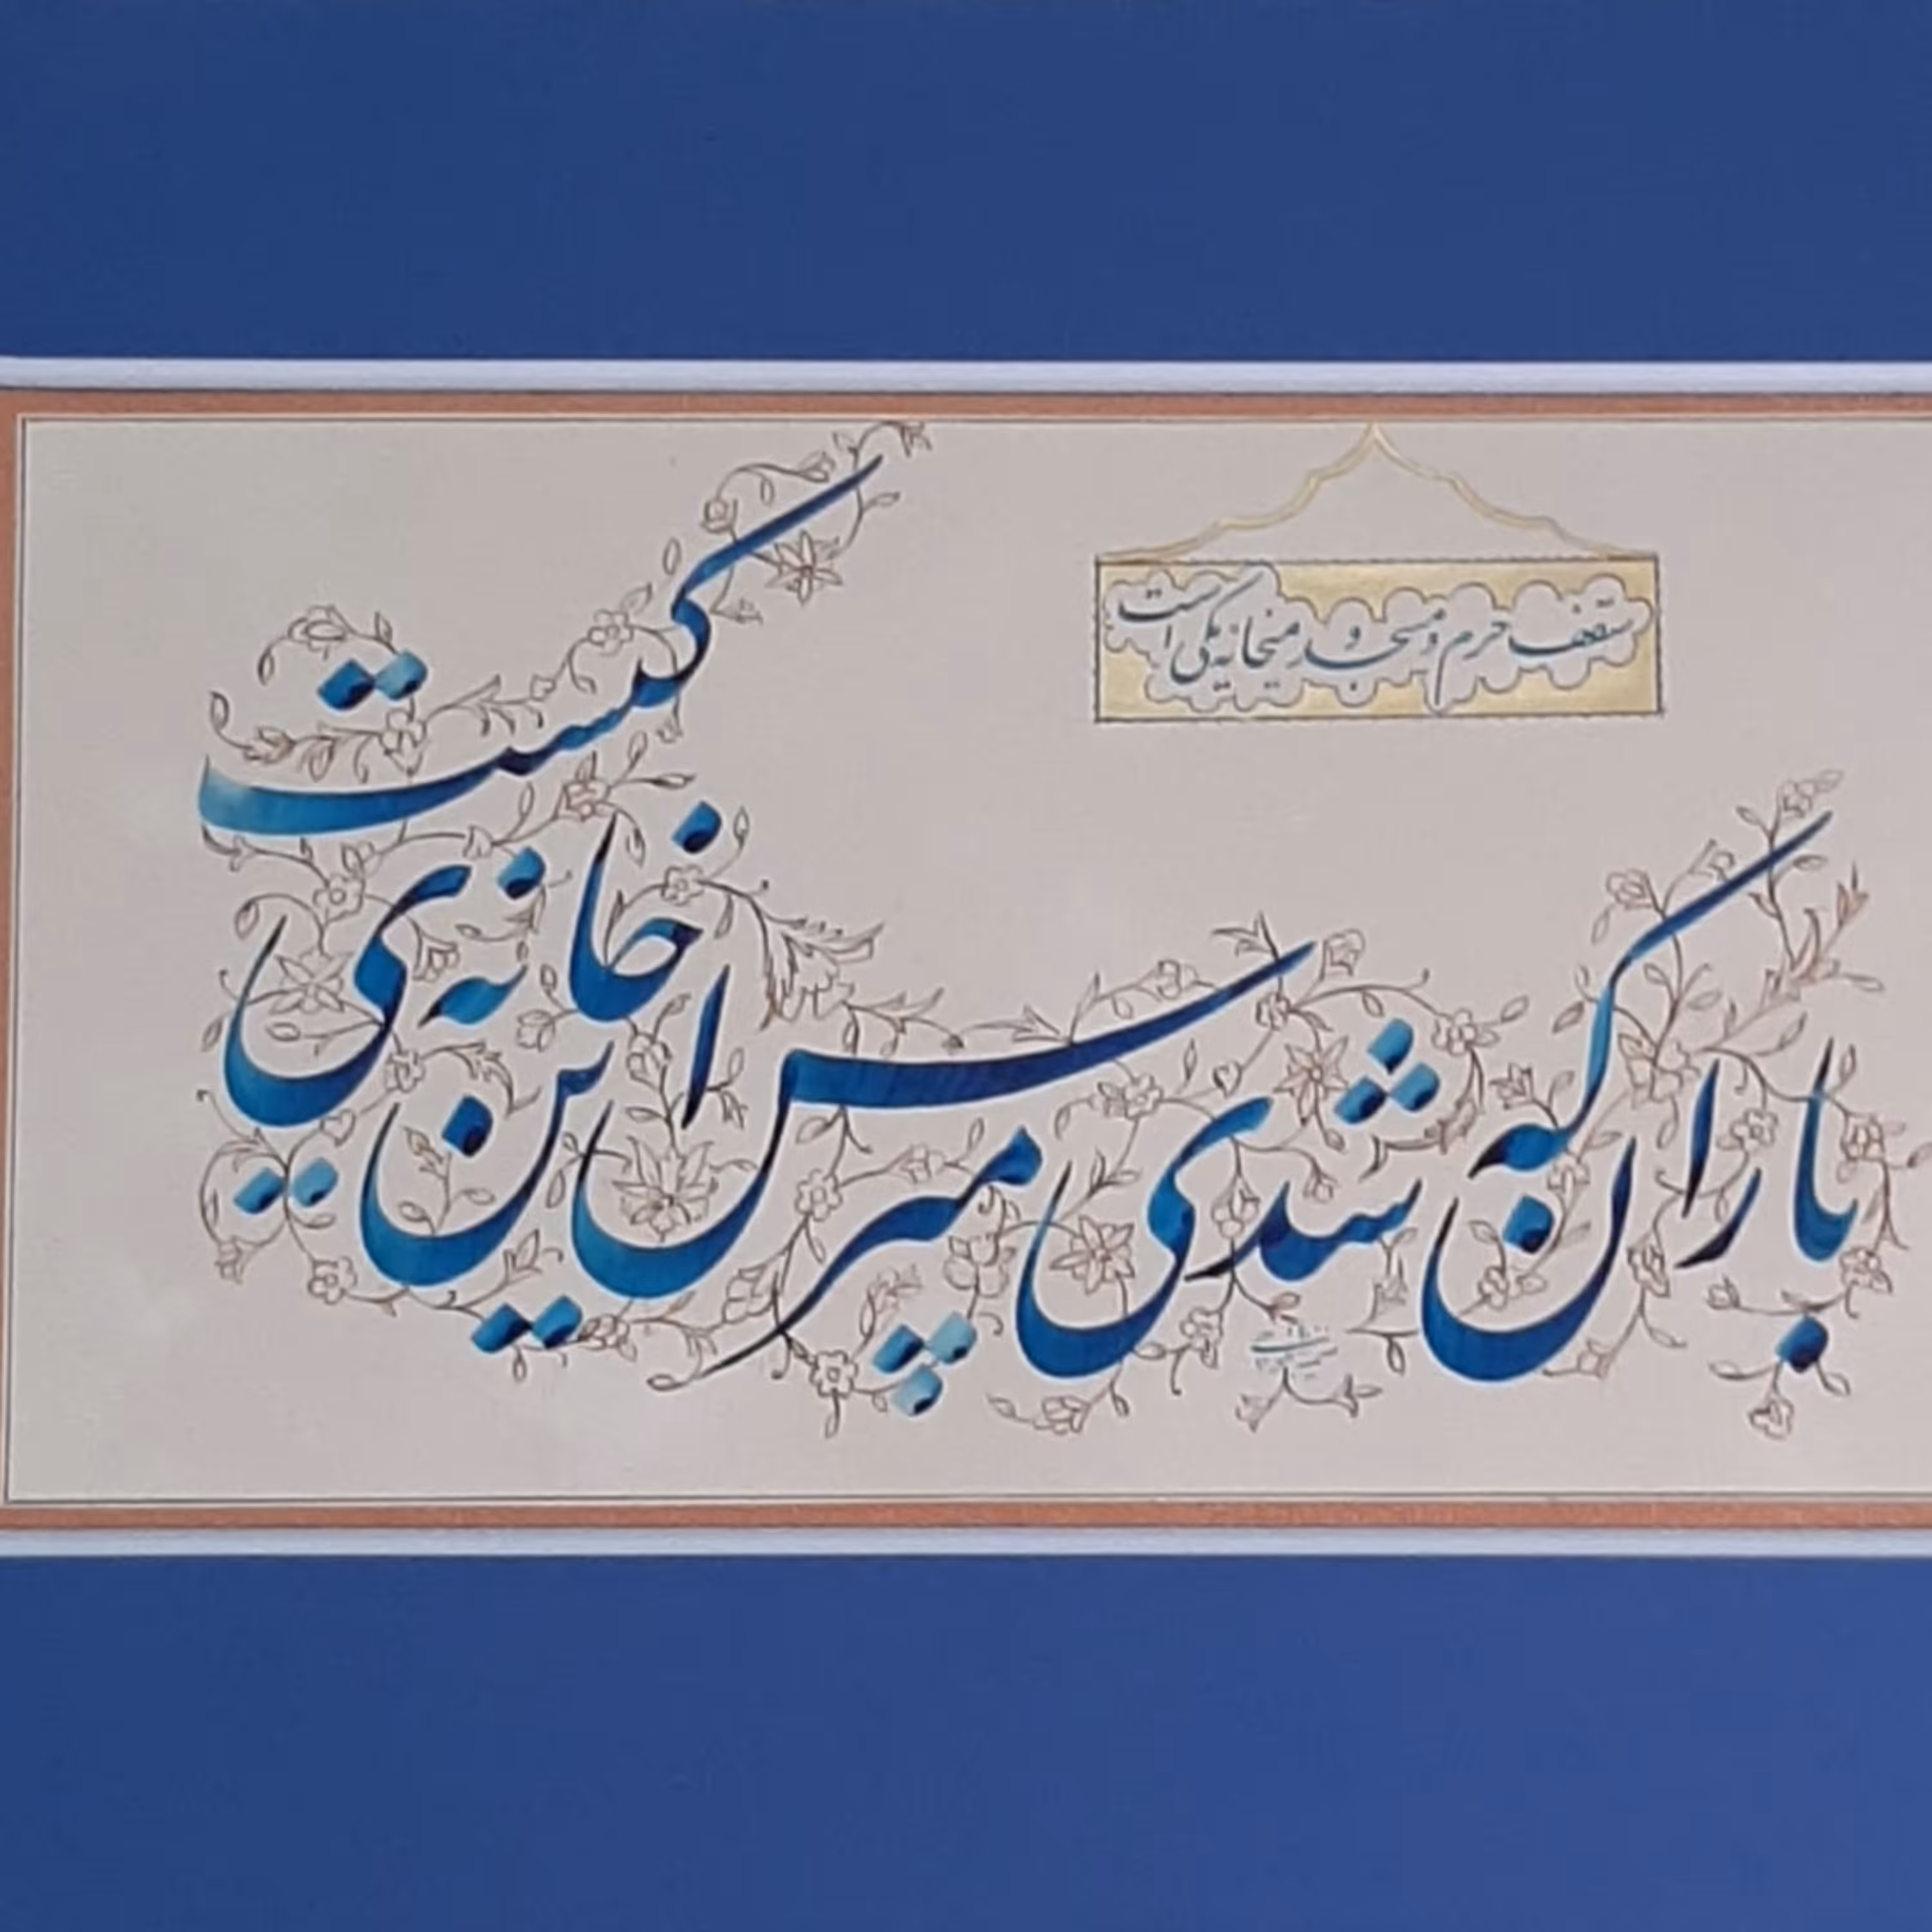 سقف حرم و مسجد و میخانه یکی است
باران که شدی مپرس این خانه‌ی کیست